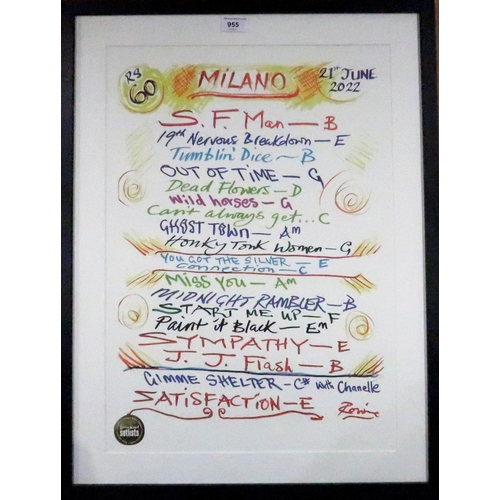 955
RS
60
MILANO
21st JUNE
2022
S.F. Man - B
19th Nervous Breakdown - E
Tumblin' Dice - B
OUT OF TIME - G
Dead Flowers - D
Wild horses - G
Can't always get... C
GHOST TOWN - Am
Honky Tonk Women - G
YOU GOT THE SILVER - E
Connection - C
MISS YOU - Am
MIDNIGHT RAMBLER - B
START ME UP - F
Paint it Black - Em
SYMPATHY - E
J.J. Flash - B
GIMME SHELTER - C# with Chanelle
SATISFACTION - E
Ronnie
setlists